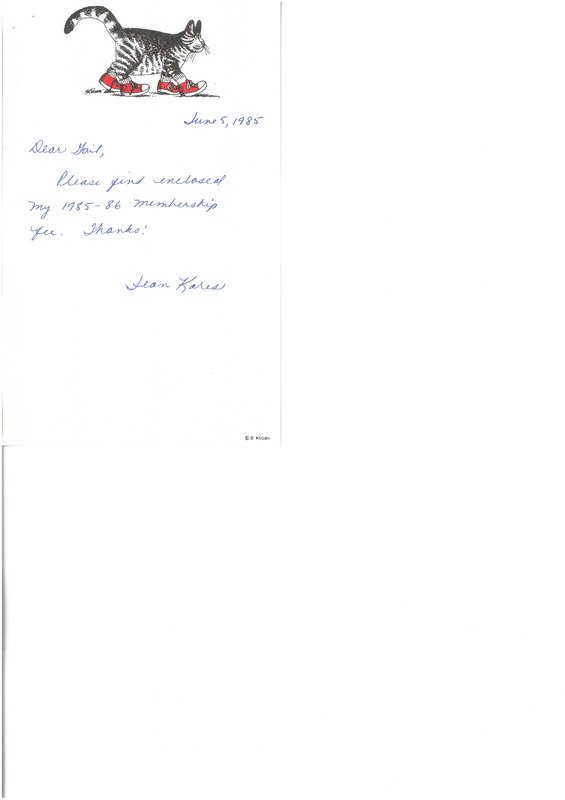 Kliban
June 5, 1985
Dear Gail,
Please find enclosed
my 1985-86 membership
fee. Thanks!
Jean Kares
© B Kliban